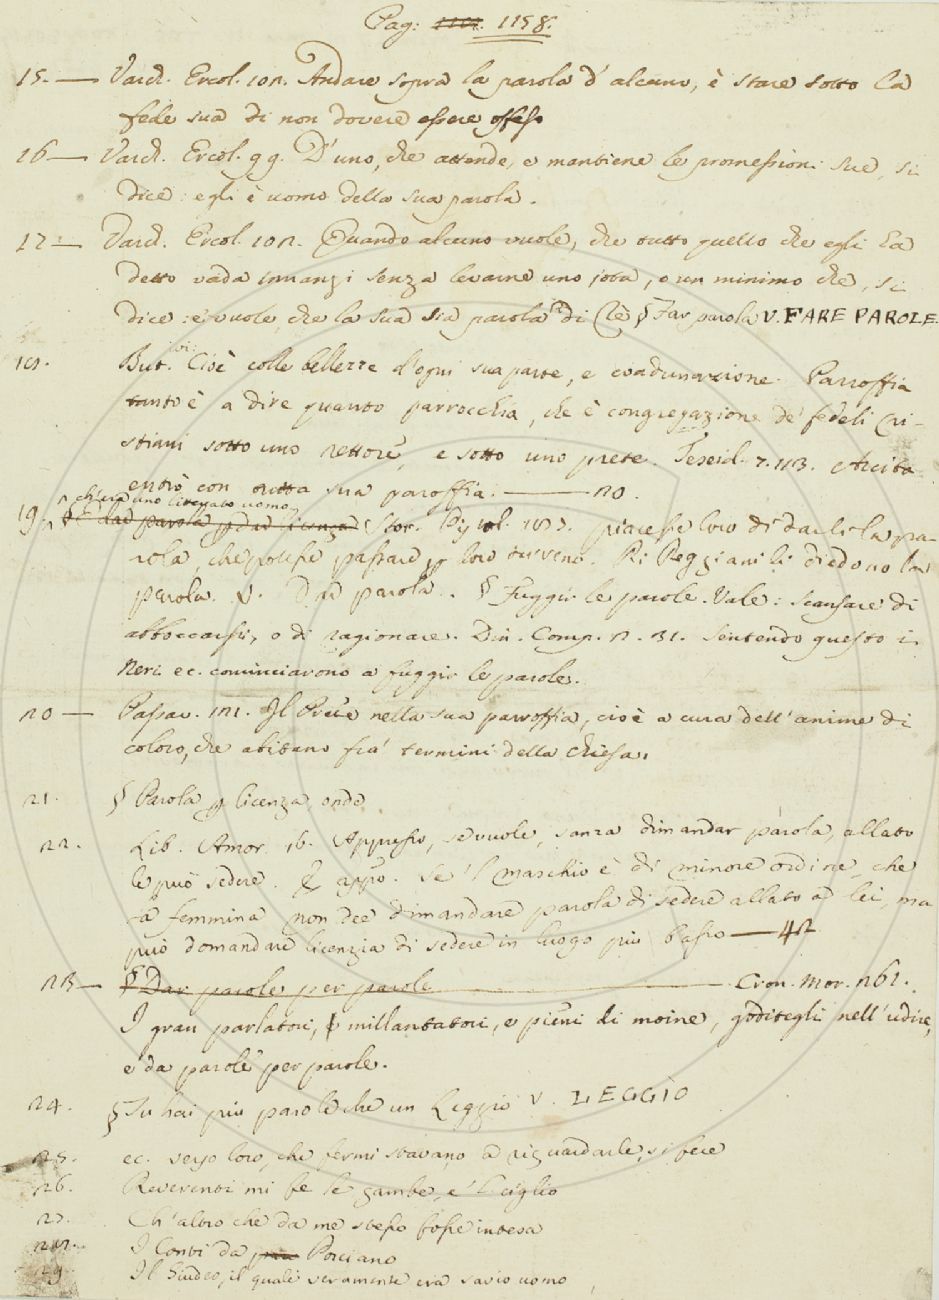 Pag: 1158.
15. — Varch. Ercol. 102. Andare sopra la parola d'alcuno, è stare sotto la
fede sua di non dovere essere offeso
16 — Varch. Ercol. 99. D'uno, che attende, e mantiene le promessioni sue, si
dice: egli è uomo della sua parola.
17 — Varch. Ercol. 102. Quando alcuno vuole, che tutto quello che egli ha
detto vada innanzi senza levarne uno jota, o un minimo che, si
dice: e' vuole, che la sua sia parola di Re § Far parola V. FARE PAROLE.
18. But. ivi: Cioè colle bellezze d'ogni sua parte, e coadunazione. Paroffia
tanto è a dire quanto parrocchia, che è congregazione de' fedeli Cri-
stiani sotto uno rettore, e sotto uno prete. Teseid. 7. 113. Arcita
entrò con tutta sua paroffia. — 20.
ch'era uno litterato uomo
19. Stor. Pistol. 182. piacesse loro di darli la pa-
rola, che potesse passare per loro terreno. Ri Reggiani li diedono la
parola. V. Dar parola. § Fuggir le parole. Vale: scansare di
abboccarsi, o di ragionare. Din. Comp. 2. 31. sentendo questo i
Neri ec. cominciarono a fuggir le parole.
20 — Passav. 121. Il Prete nella sua paroffia, cioè a cura dell'anime di
coloro, che abitano fra' termini della chiesa.
21. § Parola p licenza, onde
22. Lib. Amor. 16. Appresso, se vuole, sanza dimandar parola, allato
le può sedere. E appo. Se 'l maschio è di minore ordine, che
la femmina non dee dimandare parola di sedere allato a lei, ma
può domandare licenzia di sedere in luogo più basso — 42
23 — § Dar parole per parole — Cron. Mor. 262.
I gran parlatori, millantatori, e pieni di moine, goditegli nell'udire,
e da parole per parole.
24. § Tu hai più parole che un Leggio V. LEGGIO
25. ec. verso loro, che fermi stavano a riguardarle, si fece
26. Reverenti mi fe le gambe, e 'l ciglio
27. Ch'altro che da me stesso fosse intesa
28. I Conti da Porciano
29. Il Sindco, il quale veramente era savio uomo